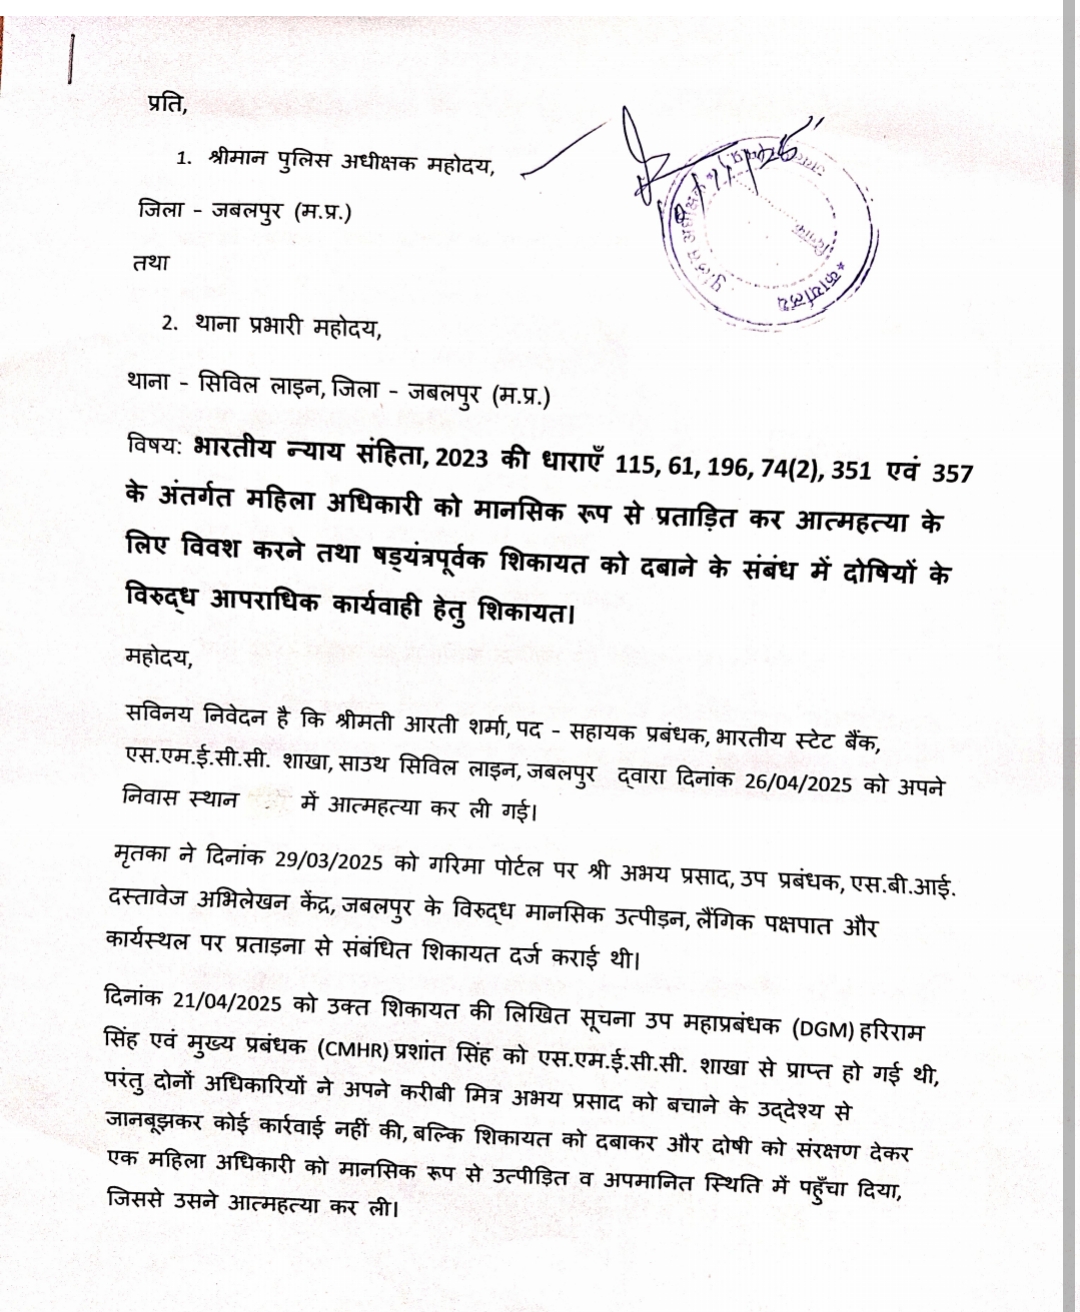 प्रति,
1. श्रीमान पुलिस अधीक्षक महोदय,
जिला - जबलपुर (म.प्र.)
तथा
2. थाना प्रभारी महोदय,
थाना - सिविल लाइन, जिला - जबलपुर (म.प्र.)
विषय: भारतीय न्याय संहिता, 2023 की धाराएँ 115, 61, 196, 74(2), 351 एवं 357
के अंतर्गत महिला अधिकारी को मानसिक रूप से प्रताड़ित कर आत्महत्या के
लिए विवश करने तथा षड्यंत्रपूर्वक शिकायत को दबाने के संबंध में दोषियों के
विरुद्ध आपराधिक कार्यवाही हेतु शिकायत।
महोदय,
सविनय निवेदन है कि श्रीमती आरती शर्मा, पद - सहायक प्रबंधक, भारतीय स्टेट बैंक,
एस.एम.ई.सी.सी. शाखा, साउथ सिविल लाइन, जबलपुर द्वारा दिनांक 26/04/2025 को अपने
निवास स्थान में आत्महत्या कर ली गई।
मृतका ने दिनांक 29/03/2025 को गरिमा पोर्टल पर श्री अभय प्रसाद, उप प्रबंधक, एस.बी.आई.
दस्तावेज अभिलेखन केंद्र, जबलपुर के विरुद्ध मानसिक उत्पीड़न, लैंगिक पक्षपात और
कार्यस्थल पर प्रताड़ना से संबंधित शिकायत दर्ज कराई थी।
दिनांक 21/04/2025 को उक्त शिकायत की लिखित सूचना उप महाप्रबंधक (DGM) हरिराम
सिंह एवं मुख्य प्रबंधक (CMHR) प्रशांत सिंह को एस.एम.ई.सी.सी. शाखा से प्राप्त हो गई थी,
परंतु दोनों अधिकारियों ने अपने करीबी मित्र अभय प्रसाद को बचाने के उद्देश्य से
जानबूझकर कोई कार्रवाई नहीं की, बल्कि शिकायत को दबाकर और दोषी को संरक्षण देकर
एक महिला अधिकारी को मानसिक रूप से उत्पीड़ित व अपमानित स्थिति में पहुँचा दिया,
जिससे उसने आत्महत्या कर ली।
कार्यालय
पुलिस अधीक्षक
दिनांक